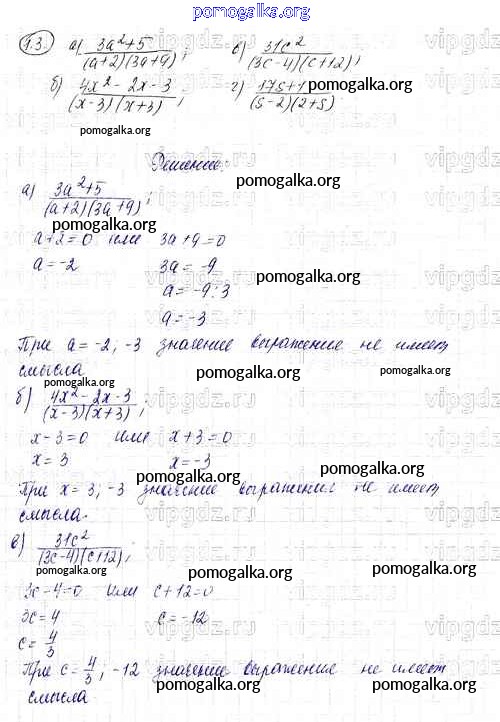 pomogalka.org
1.3. а) (3a²+5)/((a+2)(3a+9)); в) 31c²/((3c-4)(c+12));
б) (4x²-2x-3)/((x-3)(x+3)); г) (17s+1)/((s-2)(2+s))
pomogalka.org
pomogalka.org
Решение:
pomogalka.org
а) (3a²+5)/((a+2)(3a+9));
pomogalka.org
a+2=0 или 3a+9=0
a=-2 3a=-9
pomogalka.org
a=-9:3
a=-3
При a=-2; -3 значение выражение не имеет
смысла
pomogalka.org
pomogalka.org
б) (4x²-2x-3)/((x-3)(x+3));
x-3=0 или x+3=0
x=3 x=-3
pomogalka.org
pomogalka.org
При x=3; -3 значение выражения не имеет
смысла.
pomogalka.org
в) 31c²/((3c-4)(c+12));
pomogalka.org
pomogalka.org
3c-4=0 или c+12=0
3c=4 c=-12
c=4/3
pomogalka.org
При c=4/3; -12 значение выражения не имеет
смысла
pomogalka.org
pomogalka.org